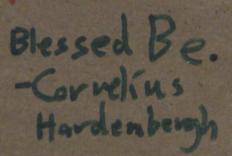 Blessed Be.
-Cornelius
Hardenbergh